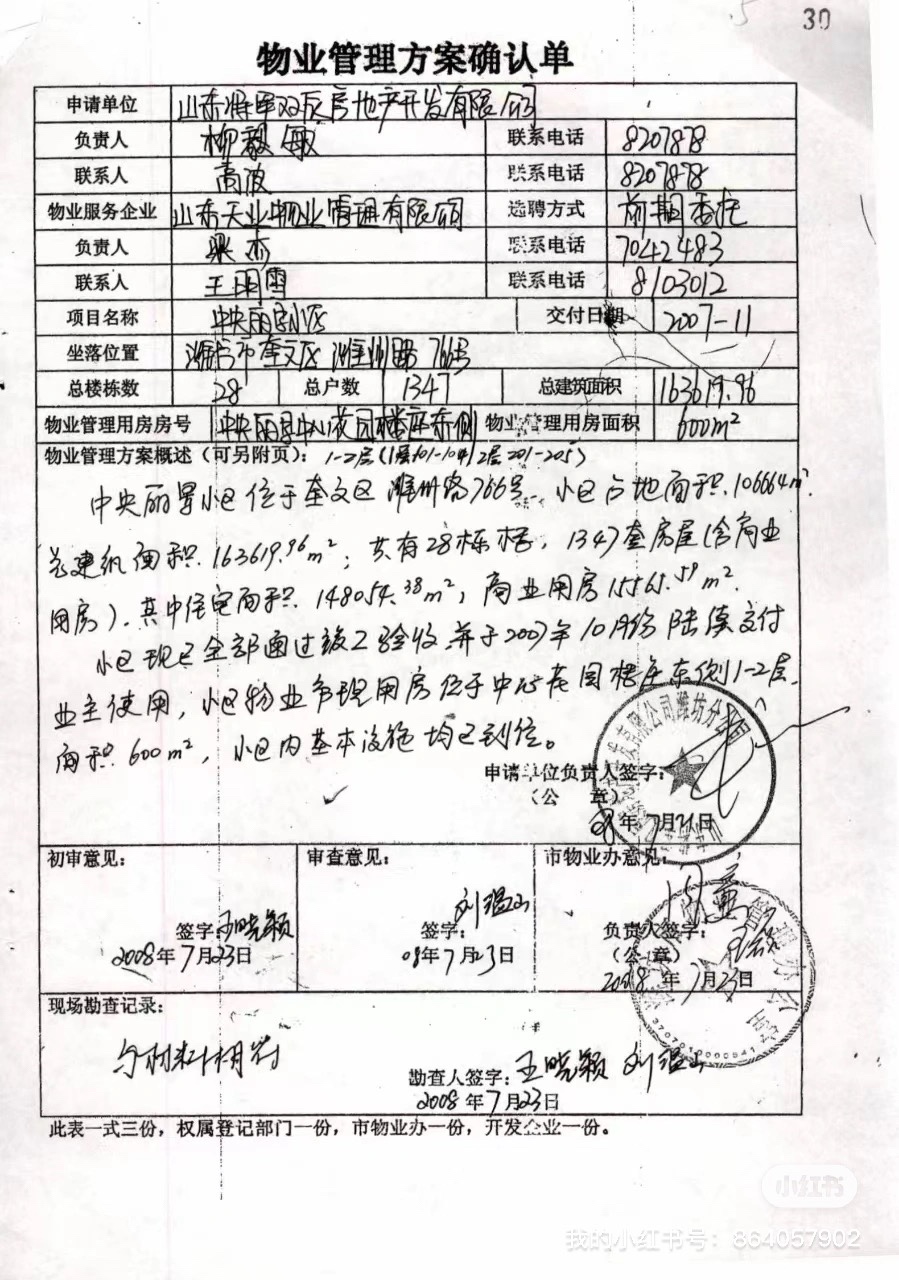 30
物业管理方案确认单
申请单位 山东将军双辰房地产开发有限公司
负责人 柳毅敏 联系电话 8207878
联系人 高波 联系电话 8207878
物业服务企业 山东天业物业管理有限公司 选聘方式 前期委托
负责人 梁杰 联系电话 7042483
联系人 王明雪 联系电话 8103012
项目名称 中央丽景小区 交付日期 2007-11
坐落位置 潍坊市奎文区潍州路766号
总楼栋数 28 总户数 1347 总建筑面积 163619.96
物业管理用房房号 中央丽景中心花园楼座东侧 物业管理用房面积 600m²
物业管理方案概述（可另附页）： 1-2层（1层101-104，2层201-205）
中央丽景小区位于奎文区潍州路766号、小区占地面积106664m²
总建筑面积163619.96m²；共有28栋楼，1347套房屋（含商业
用房）.其中住宅面积148054.38m²，商业用房15565.59m².
小区现已全部通过竣工验收.并于2007年10月份陆续交付
业主使用，小区物业管理用房位于中心花园楼座东侧1-2层,
面积600m²，小区内基本设施均已到位。
申请单位负责人签字：
（公 章）
08年7月21日
初审意见： 审查意见： 市物业办意见：
签字：王晓颖 签字： 负责人签字：
2008年7月23日 08年7月23日 （公 章）
2008年7月23日
现场勘查记录：
与材料相符
勘查人签字：王晓颖
2008年7月23日
此表一式三份，权属登记部门一份，市物业办一份，开发企业一份。
小红书
我的小红书号：864057902